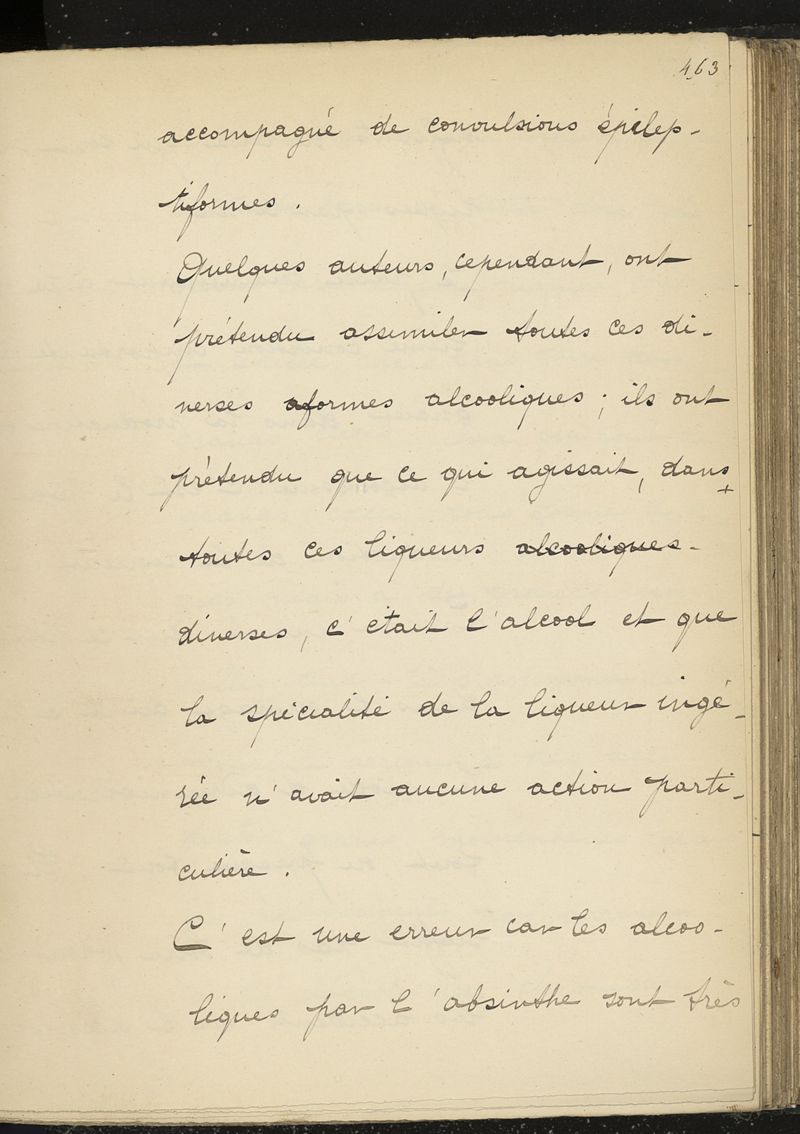 463
accompagné de convulsions épilep-
tiformes.
Quelques auteurs, cependant, ont
prétendu assimiler toutes ces di-
verses formes alcooliques ; ils ont
prétendu que ce qui agissait, dans
toutes ces liqueurs alcooliques-
diverses, c'était l'alcool et que
la spécialité de la liqueur ingé-
rée n'avait aucune action parti-
culière.
C'est une erreur car les alcoo-
liques par l'absinthe sont très